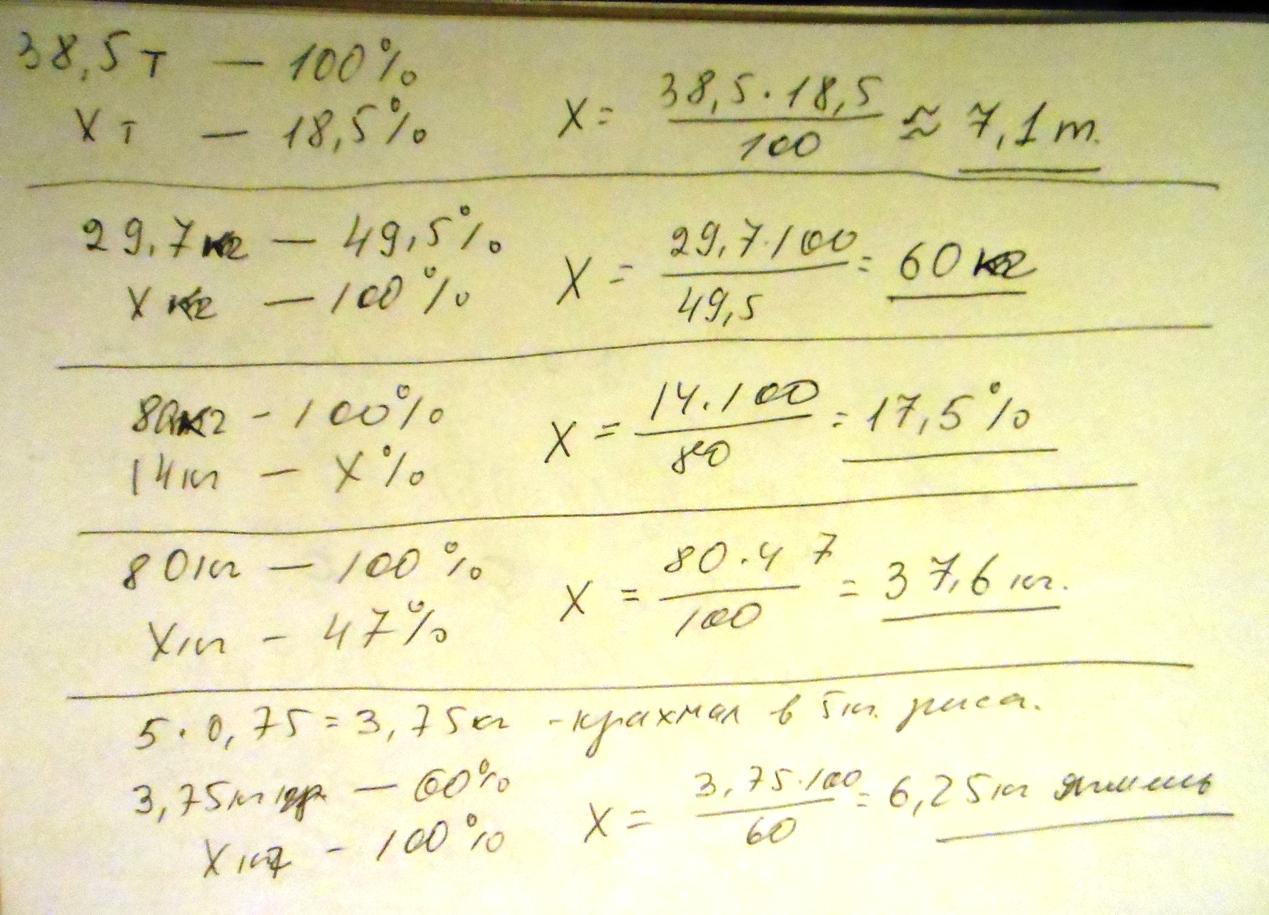 38,5 т — 100%
X т — 18,5% X = 38,5·18,5 / 100 ≈ 7,1 т.
29,7 кг — 49,5%
X кг — 100% X = 29,7·100 / 49,5 = 60 кг
80 кг - 100%
14 кг — X% X = 14·100 / 80 = 17,5%
80 кг — 100%
X кг - 47% X = 80·47 / 100 = 37,6 кг.
5·0,75 = 3,75 кг - крахмал в 5 кг. риса.
3,75 кг кр — 60%
X кг - 100% X = 3,75·100 / 60 = 6,25 кг ячмень